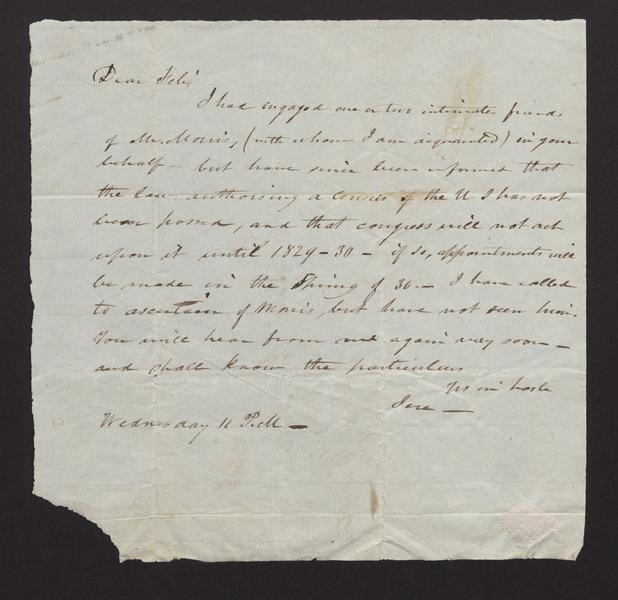 Dear Felix
I had engaged one or two intimate friends
of Mr. Morris, (with whom I am acquainted) in your
behalf – but have since been informed that
the law authorising a census of the U S has not
been passed, and that congress will not act
upon it until 1829–30 – if so, appointments will
be made in the Spring of 30 – I have called
to ascertain of Morris but have not seen him.
You will hear from me again very soon –
and shall know the particulars
Yrs in haste
Jere –
Wednesday 11 P.M –